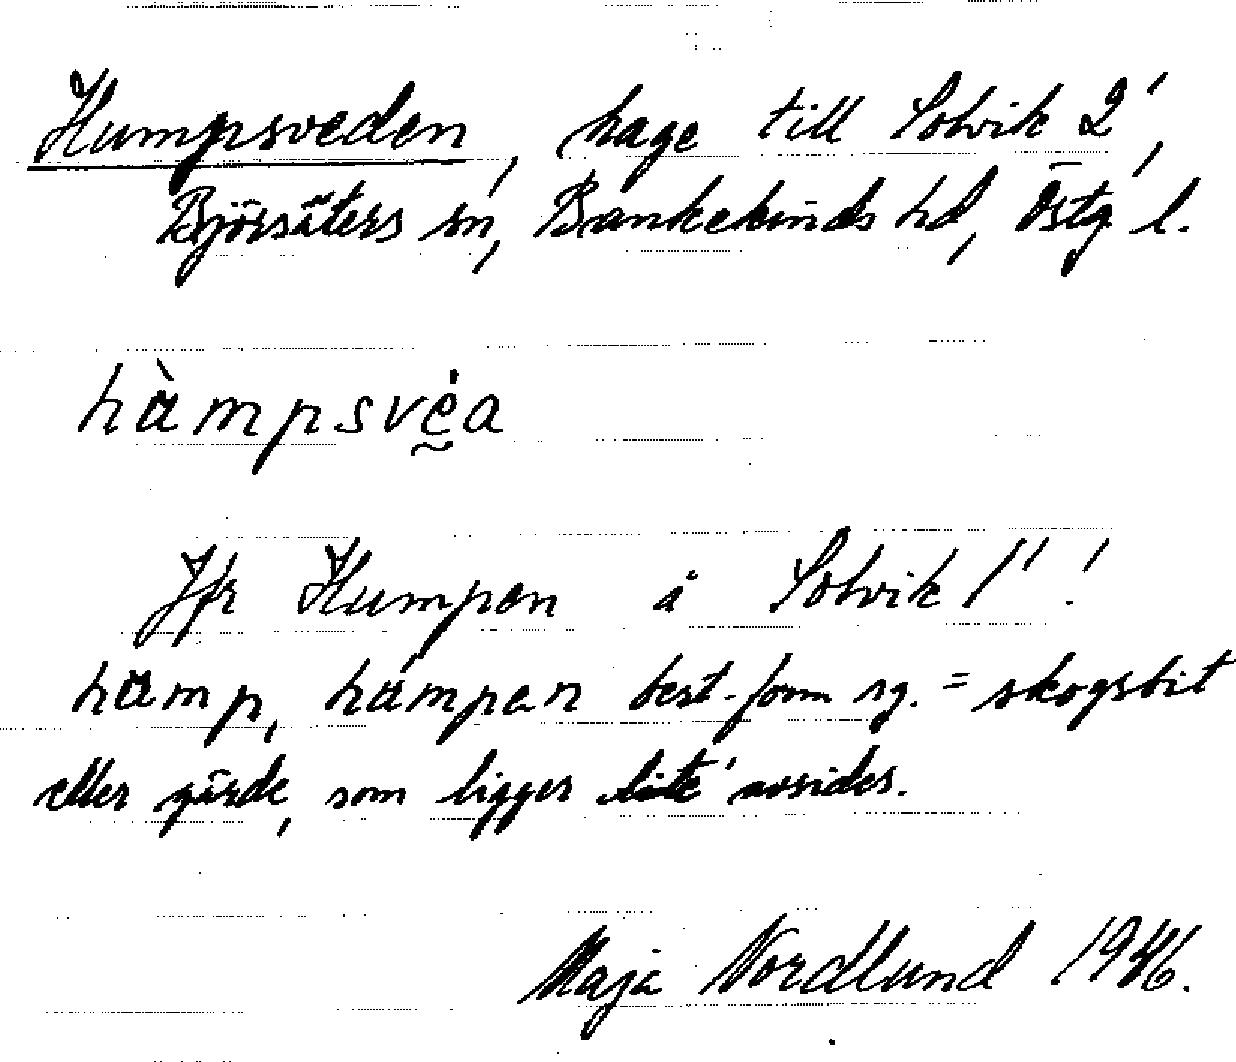 Humpsveden, hage till Solvik 2',
Björsäters sn, Bankekinds hd, Östg l.
hàmpsvéa
Jfr Humpen å Solvik 1'!
hamp, hámpen best. form sg. = skogsbit
eller gärde, som ligger lite' avsides.
Maja Nordlund 1946.